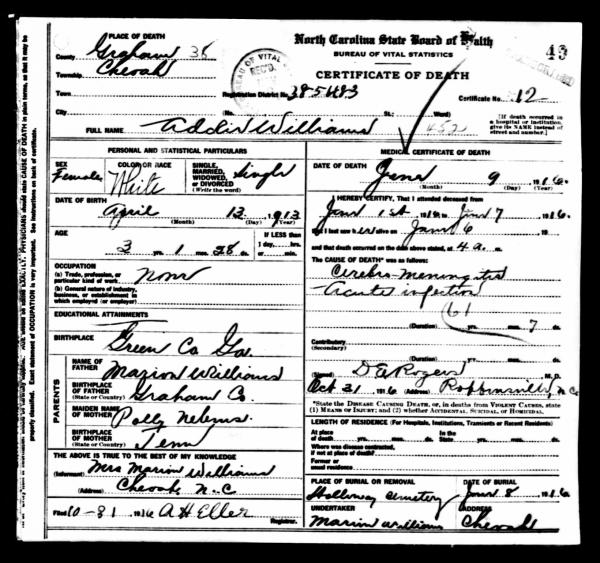 North Carolina State Board of Health
BUREAU OF VITAL STATISTICS
CERTIFICATE OF DEATH
43
PLACE OF DEATH
County Graham 38
Township Cheoah
City
Registration District No. 38-5483
Certificate No. 12
(No. St.; Ward)
452
[If death occurred in a hospital or institution, give its NAME instead of street and number.]
FULL NAME Addie Williams
PERSONAL AND STATISTICAL PARTICULARS
SEX Female
COLOR OR RACE White
SINGLE, MARRIED, WIDOWED, OR DIVORCED (Write the word) Single
DATE OF BIRTH
April 12 1913
(Month) (Day) (Year)
AGE
3 yrs. 1 mos. 28 ds.
If LESS than 1 day, hrs. or min.
OCCUPATION
(a) Trade, profession, or particular kind of work None
(b) General nature of industry, business, or establishment in which employed (or employer)
EDUCATIONAL ATTAINMENTS
BIRTHPLACE Green Co Ga.
PARENTS
NAME OF FATHER Marion Williams
BIRTHPLACE OF FATHER (State or Country) Graham Co.
MAIDEN NAME OF MOTHER Polly
BIRTHPLACE OF MOTHER (State or Country) Tenn
THE ABOVE IS TRUE TO THE BEST OF MY KNOWLEDGE
(Informant) Mrs Marion Williams
(Address) Cheoah, N.C
Filed 10-31 1916 A H Eller
Registrar.
MEDICAL CERTIFICATE OF DEATH
DATE OF DEATH June 9 1916.
(Month) (Day) (Year)
I HEREBY CERTIFY, That I attended deceased from
June 1st 1916 to June 7 1916.
that I last saw her alive on June 6 19
and that death occurred on the date above stated, at 4 a. m.
The CAUSE OF DEATH* was as follows:
Cerebro-Meningitis
Acute infection
61
(Duration) yrs. mos. 7 ds.
Contributory (Secondary)
(Duration) yrs. mos. ds.
(Signed) D A Rogers M. D.
Oct 31 1916 (Address) Robbinsville, N C
*State the DISEASE CAUSING DEATH, or, in deaths from VIOLENT CAUSES, state (1) MEANS OF INJURY; and (2) whether ACCIDENTAL, SUICIDAL, OR HOMICIDAL.
LENGTH OF RESIDENCE (For Hospitals, Institutions, Transients or Recent Residents)
At place of death yrs. mos. ds. In the State yrs. mos. ds.
Where was disease contracted, if not at place of death?
Former or usual residence
PLACE OF BURIAL OR REMOVAL
Holloway Cemetery
DATE OF BURIAL
June 8 1916
UNDERTAKER
Marion Williams
ADDRESS
Cheoah